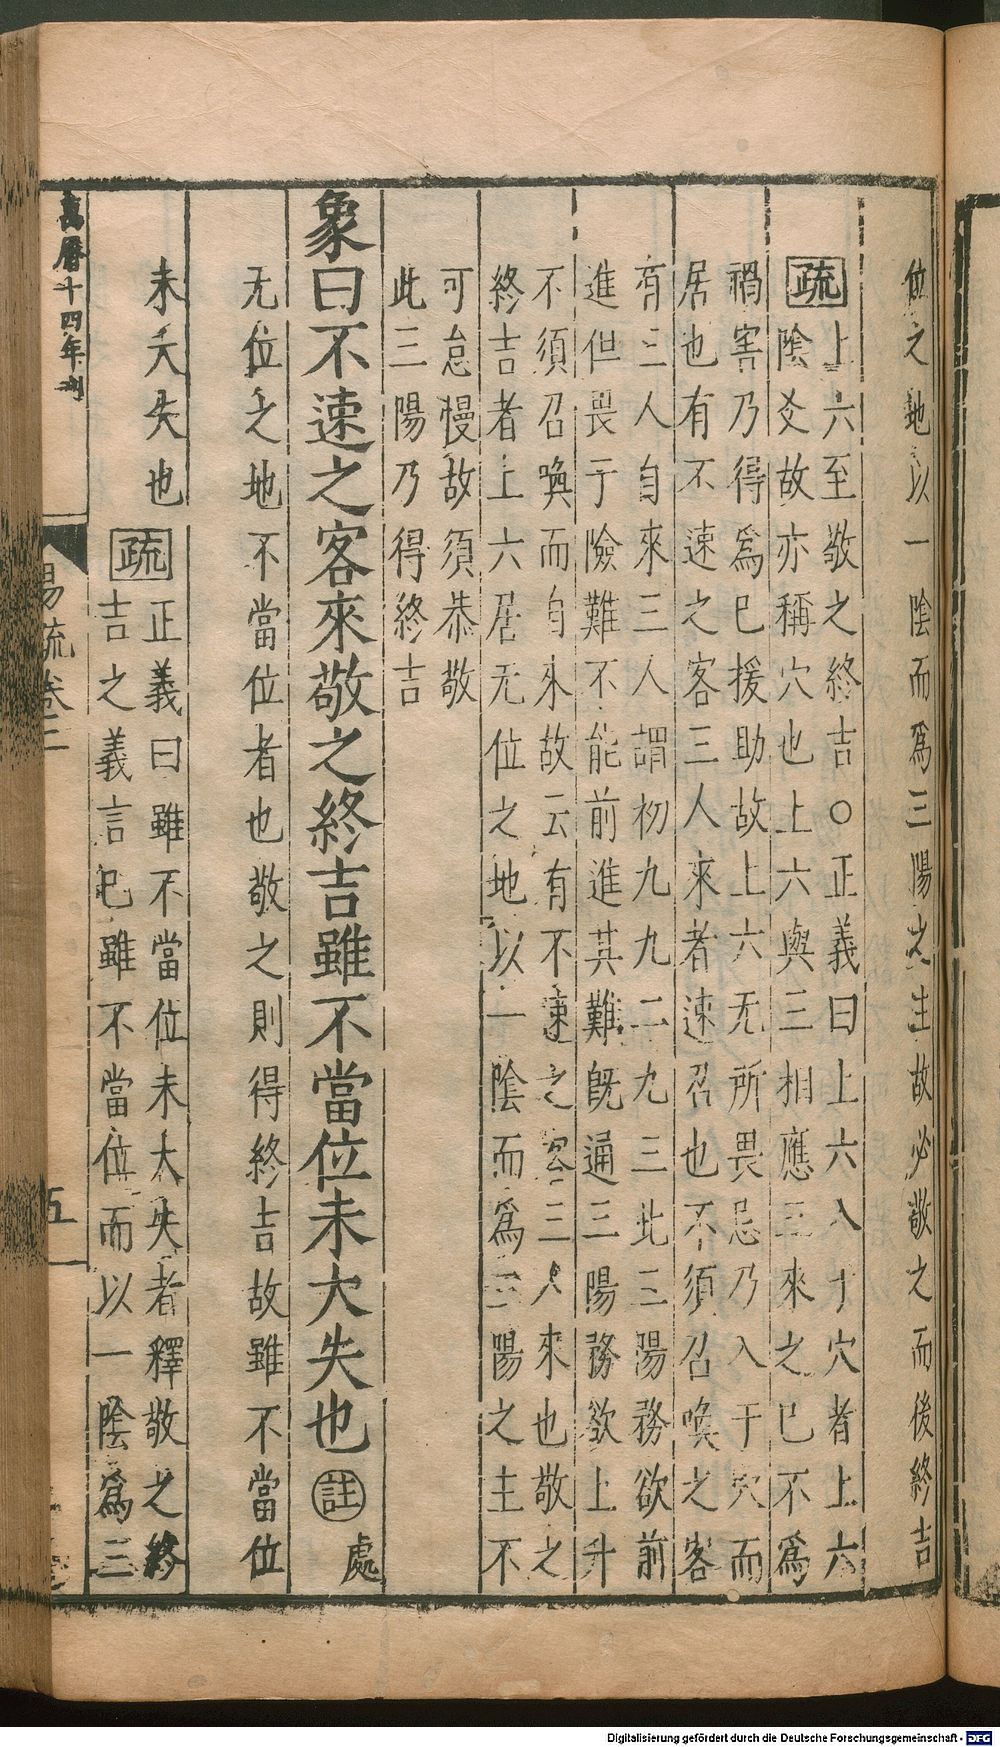 位之地以一陰而爲三陽之主故必敬之而後終吉
疏
上六至敬之終吉○正義曰上六入于穴者上六
陰爻故亦稱穴也上六與三相應三來之已不爲
禍害乃得爲已援助故上六无所畏忌乃入于穴而
居也有不速之客三人來者速召也不須召喚之客
有三人自來三人謂初九九二九三此三陽務欲前
進但畏于險難不能前進其難既通三陽務欲上升
不須召喚而自來故云有不速之客三人來也敬之
終吉者上六居无位之地以一陰而爲三陽之主不
可怠慢故須恭敬
此三陽乃得終吉
象曰不速之客來敬之終吉雖不當位未大失也
註
處
无位之地不當位者也敬之則得終吉故雖不當位
未大失也
疏
正義曰雖不當位未大失者釋敬之終
吉之義言已雖不當位而以一陰爲三
萬曆十四年刊
易疏卷二
五
Digitalisierung gefördert durch die Deutsche Forschungsgemeinschaft - DFG